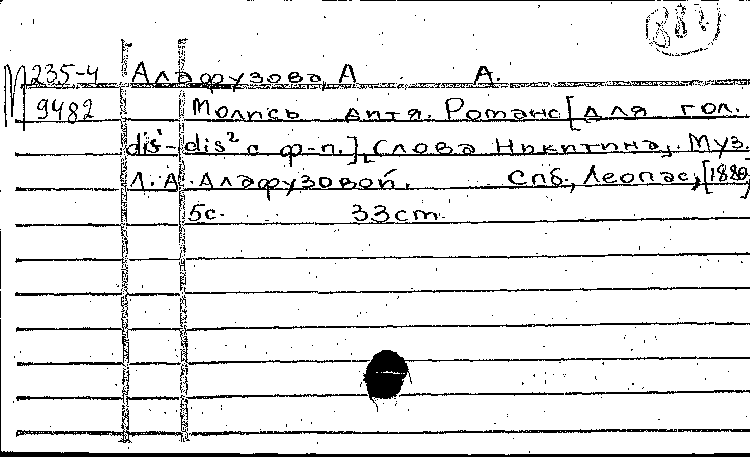 882
М 235-4 Алафузова, А А.
9482 Молись дитя. Романс [для гол.
dis¹-dis² с ф-п.], Слова Никитина, Муз.
Л. А. Алафузовой. Спб., Леопас, [1880]
5с. 33cm